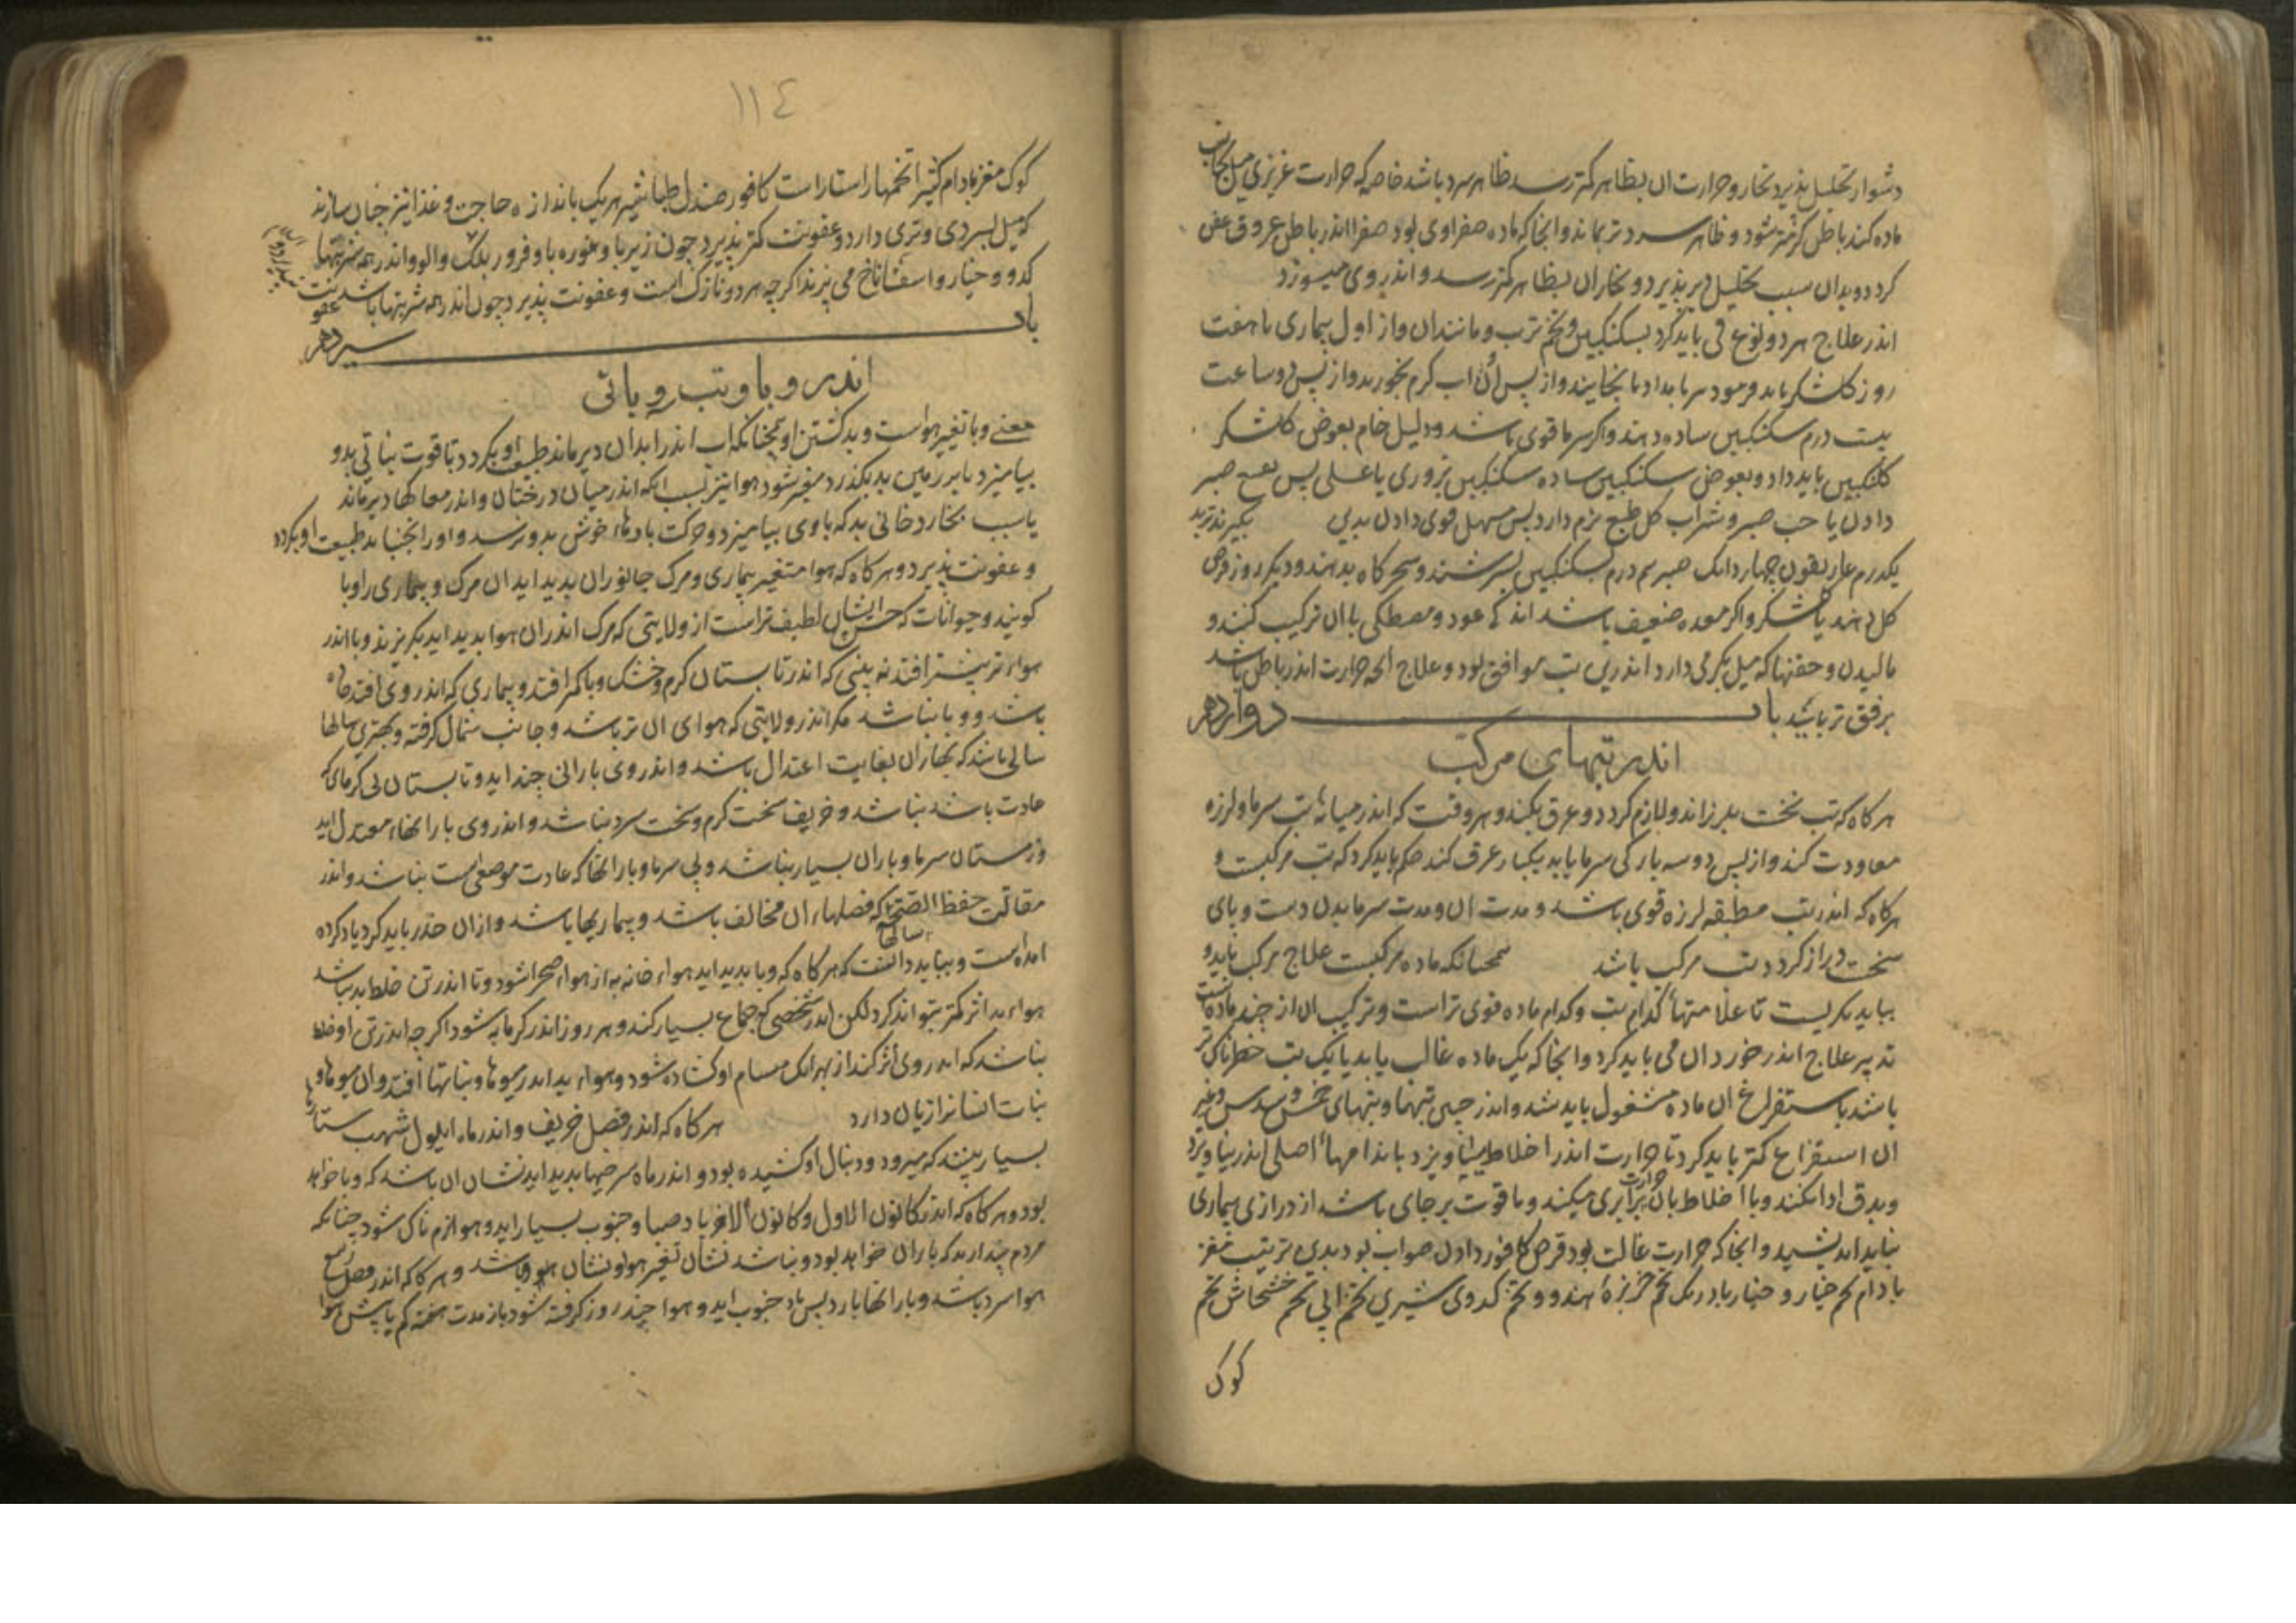 دشوار تحلیل پذیرد بخار و حرارت ان بظاهر کمتر رسد ظاهر سرد باشد خاصه که حرارت غریزی میل بجانب
ماده کند باطن کرمتر شود و ظاهر سردتر بماند و انجا که ماده صفراوی بود صفرا اندر باطن عروق عفن
کردد و بدان سبب تحلیل دیر پذیرد و بخار ان بظاهر کمتر رسد و اندر وی میسوزد
اندر علاج هر دو نوع قی باید کرد بسکنکبین و تخم ترب و مانند ان و از اول بیماری تا هفت
روز کلشکر باید فرمود هر بامداد تا بخایند و از پس ان اب کرم بخورند و از پس دو ساعت
بیست درم سکنکبین ساده دهند و اکر سرما قوی باشد و دلیل خام بعوض کلشکر
کلنکبین باید داد و بعوض سکنکبین ساده سکنکبین بزوری یا عسلی پس نقیع صبر
دادن یا حب صبر و شراب کل طبع نرم دارد پس مسهل قوی دادن بدین بکیرند تربد
یکدرم غاریقون چهار دانک صبر نیم درم بسکنکبین بسرشند و سحرکاه بدهند و دیکر روز قرص
کل دهند با شکر و اکر معده ضعیف باشد اندکی عود و مصطکی با ان ترکیب کنند و
مالیدن و حقنها که میل بکرمی دارد اندرین تب موافق بود و علاج انچه حرارت اندر باطن باشد
برفق تر باشد باب دوازدهم
اندر تبهای مرکب
هر کاه که تب نخست بلرزاند و لازم کردد و عرق بکند و هر وقت که اندر میانه تب سرما و لرزه
معاودت کند و از پس دو سه بار کی سرما یابد یکبار عرق کند حکم باید کرد که تب مرکبست و
هرکاه که اندر تب مطبقه لرزه قوی باشد و مدت ان و مدت سرما بدن دست و پای
سخت دراز کردد تب مرکب باشد همچنانکه ماده مرکبست علاج مرکب باید و
بباید نکریست تا علامتها کدام تب و کدام ماده قوی تر است و ترکیب ان از چند ماده است
تدبیر علاج اندر خور ان می باید کرد و انجا که یک ماده غالب یابد یا یک تب خطرناک تر
باشد باستفراغ ان ماده مشغول باید شد و اندر جبن تبها و تبهای خمس و سدس و غیر
ان استفراغ کمتر باید کرد تا حرارت اندر اخلاط نیاویزد باندامهاء اصلی اندر نیاویزد
و بدق ادا نکند و با اخلاط بان حرارت برابری میکند و تا قوت بر جای باشد از درازی بیماری
نباید اندیشید و انجا که حرارت غالب بود قرص کافور دادن صواب بود بدین ترتیب مغز
بادام تخم خیار و خیار بادرنک تخم خربزه هندو و تخم کدوی شیرین تخم ابی تخم خشخاش تخم
کوک
۱۱٤
کوک مغز بادام کثیرا تخمها راستاراست کافور صندل طباشیر هر یک باندازه حاجت و غذا نیز چنان سازند
که میل بسردی و تری دارد و عفونت کمتر پذیرد چون زیربا و غوره با و فرور بنک و الو و اندر همه شربتها
کدو و خیار و اسفاناخ می پزند اکرچه هر دو نازک است و عفونت پذیرد چون اندر همه شربتها باشد عفونت
باب سیزدهم
اندر وبا و تب وبائی
معنی وبا تغیر هواست و بد کشتن او همچنانکه اب اندر ابدان دیر ماند طبع او بکردد تا قوت نباتی بدو
بیامیزد یا بر زمین بد بکذرد متغیر شود هوا نیز بسبب انکه اندر میان درختان و اندر مغاکها دیر ماند
یا بسبب بخار دخانی بد که با وی بیامیزد و حرکت بادهاء خوش بدو نرسد و او را نجنباند طبیعت او بکردد
و عفونت پذیرد و هر کاه که هوا متغیر بیماری و مرک جانوران پدید اید ان مرک و بیماری را وبا
کویند و حیوانات که حس ایشان لطیف تر است از ولایتی که مرک اندران هوا پدید اید بکریزند و وبا اندر
هواء تر بیشتر افتد نه بینی که اندر تابستان کرم و خشک وبا کمتر افتد و بیماری که اندر وی افتد حاد
باشد و وبا نباشد مکر اندر ولایتی که هوای ان تر باشد و جانب شمال کرفته و بهترین سالها
سالی باشد که بهار ان بغایت اعتدال باشد و اندر وی بارانی چند اید و تابستان بی کرمای که
عادت باشد نباشد و خریف سخت کرم و سخت سرد نباشد و اندر وی بارانهاء معتدل اید
و زمستان سرما و باران بسیار نباشد و بی سرما و بارانها که عادت موضعی است نباشد و اندر
مقالت حفظ الصحة سالها که فصلهاء ان مخالف باشد و بیماریها باشد و از ان حذر باید کرد یاد کرده
امده است و بباید دانست که هر کاه که وبا پدید اید هواء خانه به از هواء صحرا شود و تا اندر تن خلط بد نباشد
هواء بد اثر کمتر بتواند کرد لکن اندر شخصی که جماع بسیار کند و هر روز اندر کرمابه شود اکرچه اندر تن او خلط
نباشد که اندر وی اثر کند از بهر انک مسام او کشاده شود و هواء بد اندر میوها و نباتها افتد و ان میوها و
نبات انسانرا زیان دارد هر کاه که اندر فصل خریف و اندر ماه ایلول شهب ستارها
بسیار بینند که میرود و دنبال او کشیده بود و اندر ماه سرخیها پدید اید نشان ان باشد که وبا خواهد
بود و هر کاه که اندر کانون الاول و کانون الاخر باد صبا و جنوب بسیار اید و هوا نژم ناک شود چنانکه
مردم پندارند که باران خواهد بود و نباشد نشان تغیر هوا و نشان وبا باشد و هر کاه که اندر فصل ربیع
هوا سرد باشد و بارانها بارد پس باد جنوب اید و هوا چند روز کرفته شود باز مدت هفته کم یا بیش هوا